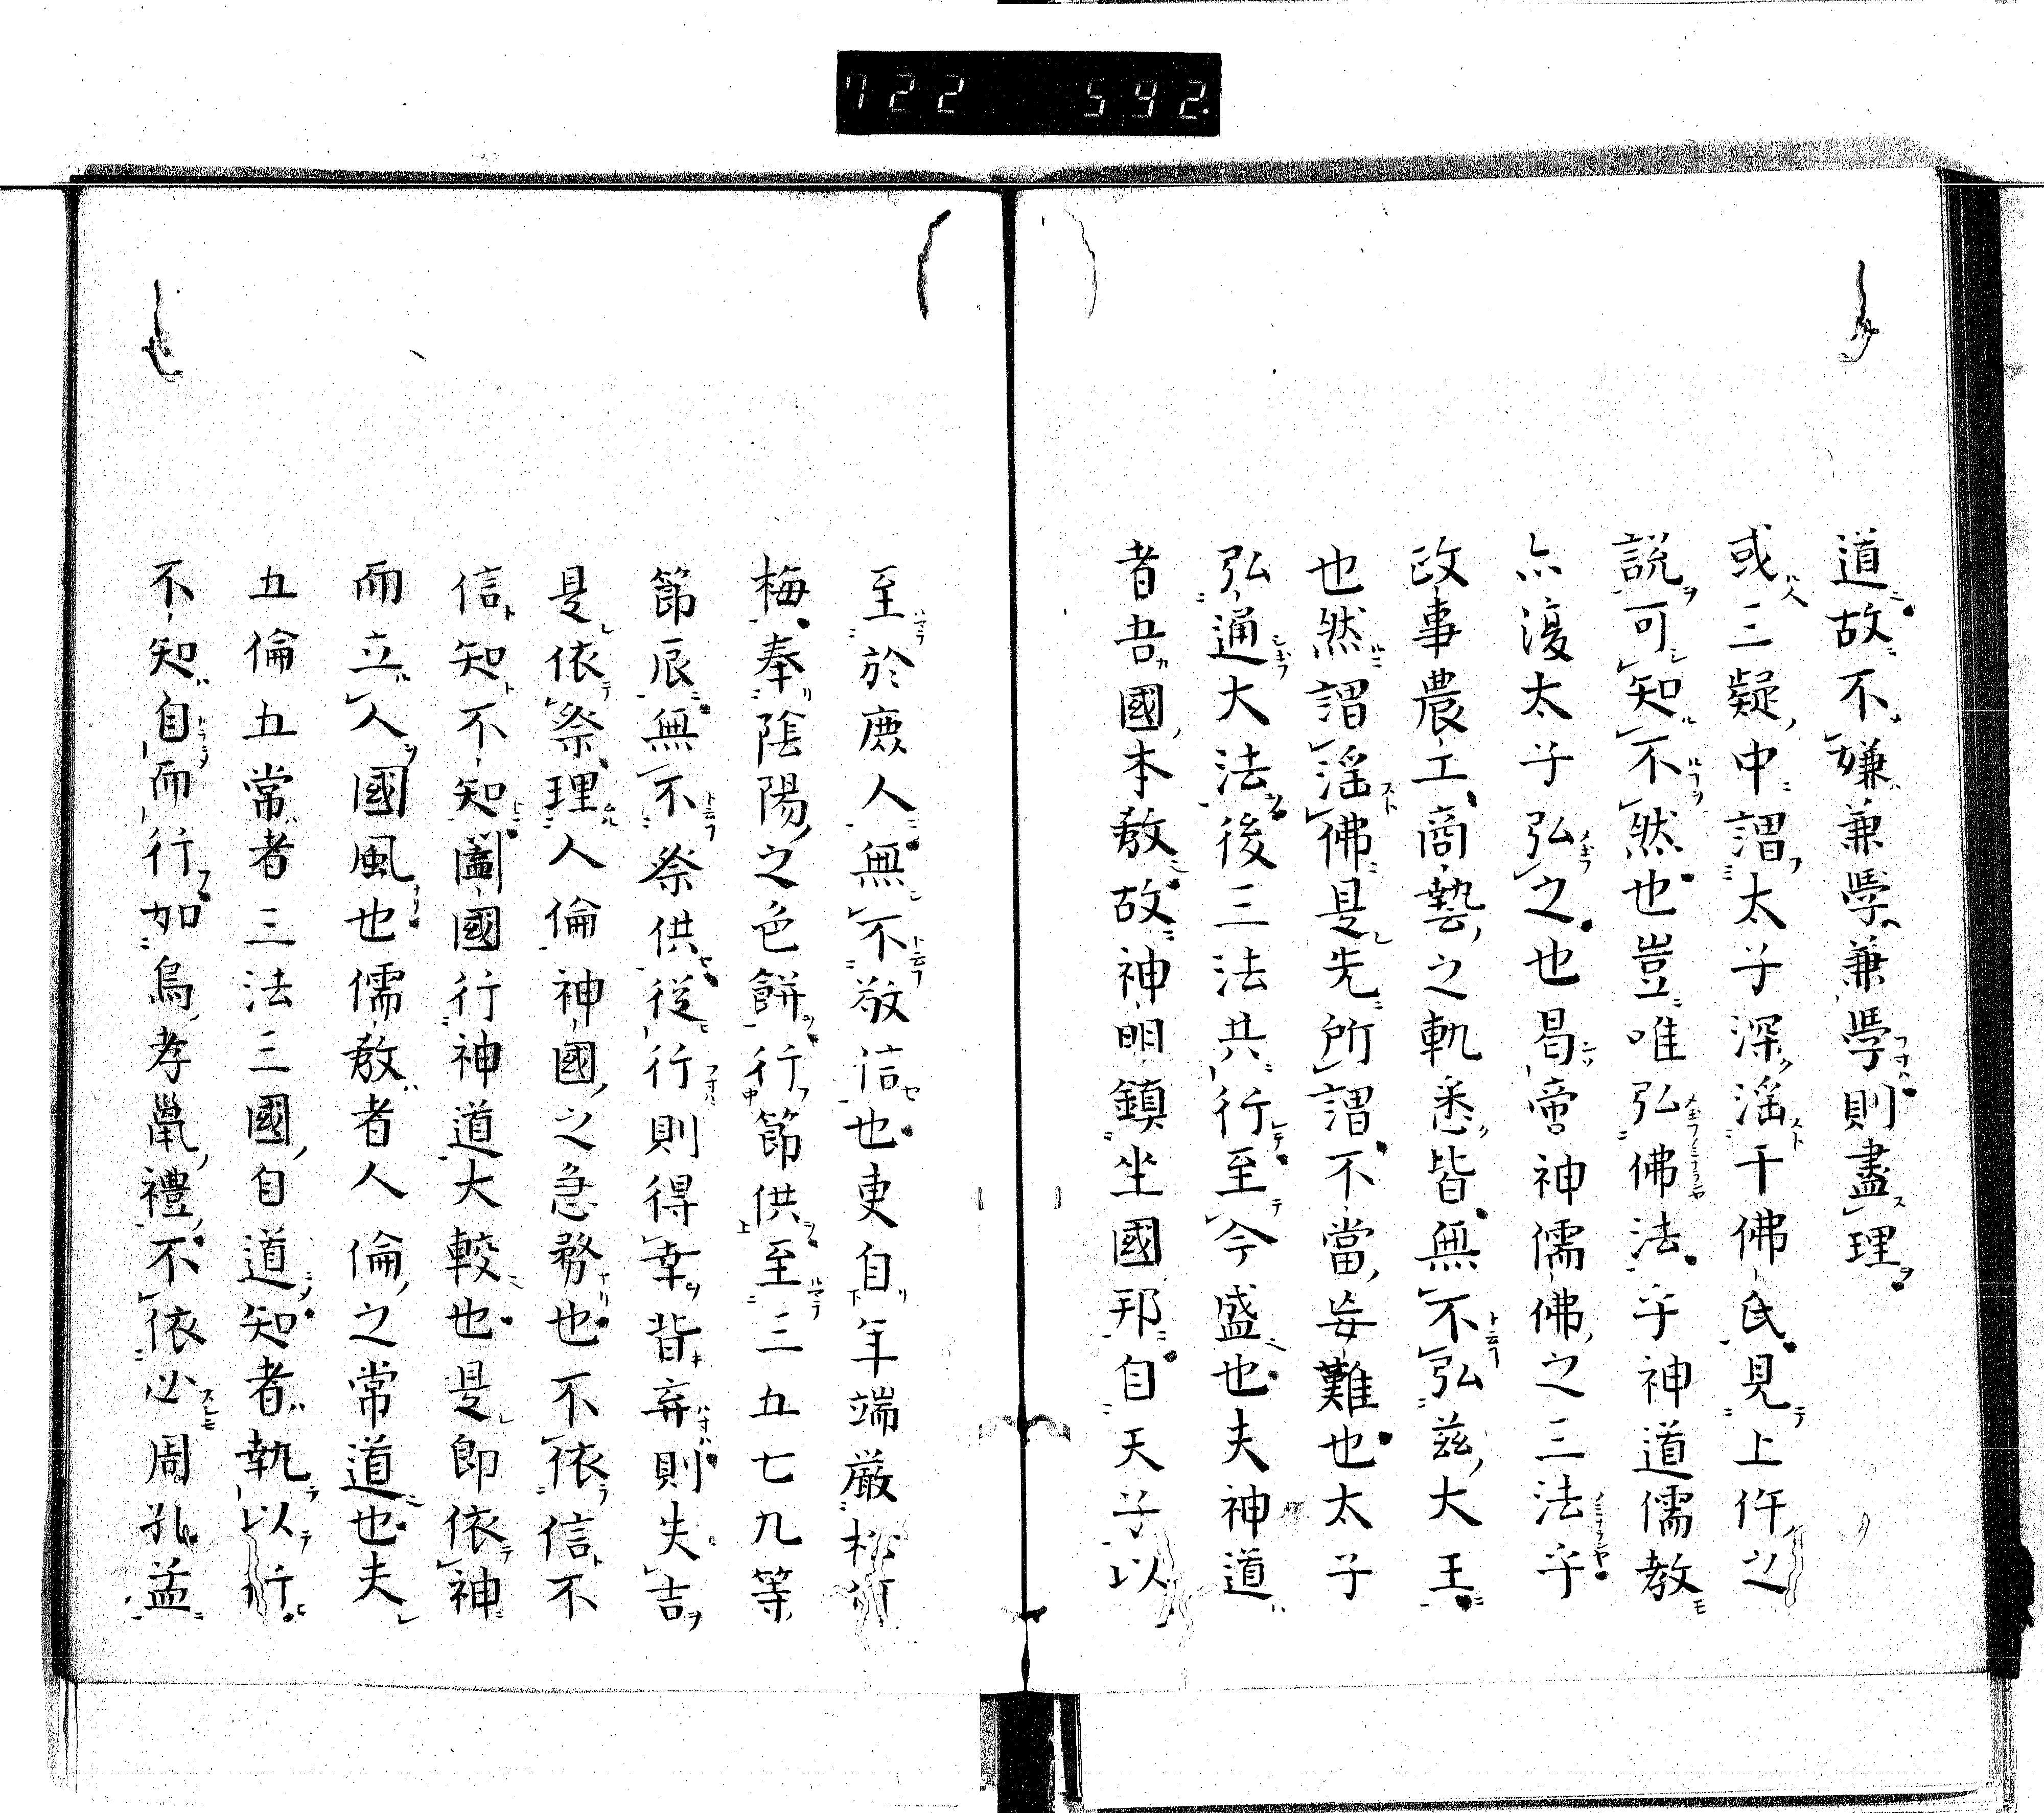 722 592
道故不嫌兼學兼學則盡理
或三疑中謂太子深淫于佛氏見上件之
說可知不然也豈唯弘佛法乎神道儒教
亦復太子弘之也曷啻神儒佛之三法乎
政事農工商藝之軌悉皆無不弘茲大王
也然謂淫佛是先所謂不當妄難也太子
弘通大法後三法共行至今盛也夫神道
者吾國本教故神明鎮坐國邦自天子以
至於庶人無不敬信也吏自年端嚴松竹
梅奉陰陽之色餅行節供至三五七九等
節辰無不祭供從行則得幸背弃則失吉
是依祭理人倫神國之急務也不依信不
信知不知圖國行神道大較也是即依神
而立人國風也儒教者人倫之常道也夫
五倫五常者三法三國自道知者執以行
不知自而行如烏孝鼠禮不依必周孔孟